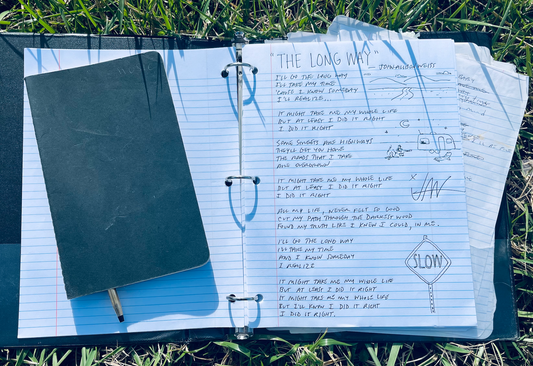 "THE LONG WAY"
I'LL GO THE LONG WAY
I'LL TAKE MY TIME
'CAUSE I KNOW SOMEDAY
I'LL REALIZE...
IT MIGHT TAKE ME MY WHOLE LIFE
BUT AT LEAST I DID IT RIGHT
I DID IT RIGHT
SOME STREETS ARE HIGHWAYS
THEY'LL GET YOU HOME
THE ROADS THAT I TAKE
ARE
IT MIGHT TAKE ME MY WHOLE LIFE
BUT AT LEAST I DID IT RIGHT
I DID IT RIGHT
ALL MY LIFE, NEVER FELT SO GOOD
CUT MY PATH THROUGH THE DARKEST WOOD
FOUND MY TRUTH LIKE I KNEW I COULD, IN ME.
I'LL GO THE LONG WAY
I'LL TAKE MY TIME
AND I KNOW SOMEDAY
I REALIZE
IT MIGHT TAKE ME MY WHOLE LIFE
BUT AT LEAST I DID IT RIGHT
IT MIGHT TAKE ME MY WHOLE LIFE
BUT I'LL KNOW I DID IT RIGHT
I DID IT RIGHT.
X JAW
SLOW